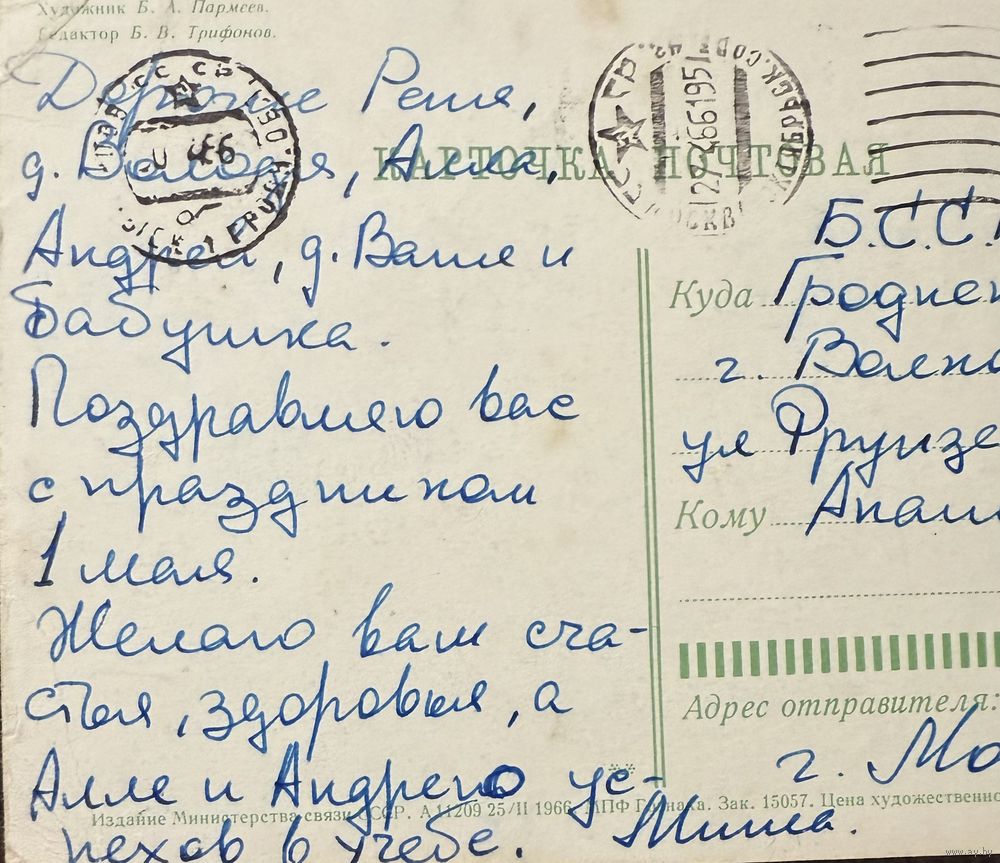 Художник Б. А. Пармеев.
Редактор Б. В. Трифонов.
КАРТОЧКА ПОЧТОВАЯ
Дорогие Рая,
д. Володя, Алла,
Андрей, д. Ваня и
Бабушка.
Поздравляю вас
с праздником
1 мая.
Желаю вам сча-
стья, здоровья, а
Алле и Андрею ус-
пехов в учебе. Миша.
Б.С.С.
Куда Гроднен
г. Волко
ул Фрунзе
Кому
Адрес отправителя:
г. Мо
Издание Министерства связи СССР. А 11209 25/II 1966. МПФ Гознака. Зак. 15057. Цена художественно
www.ay.by